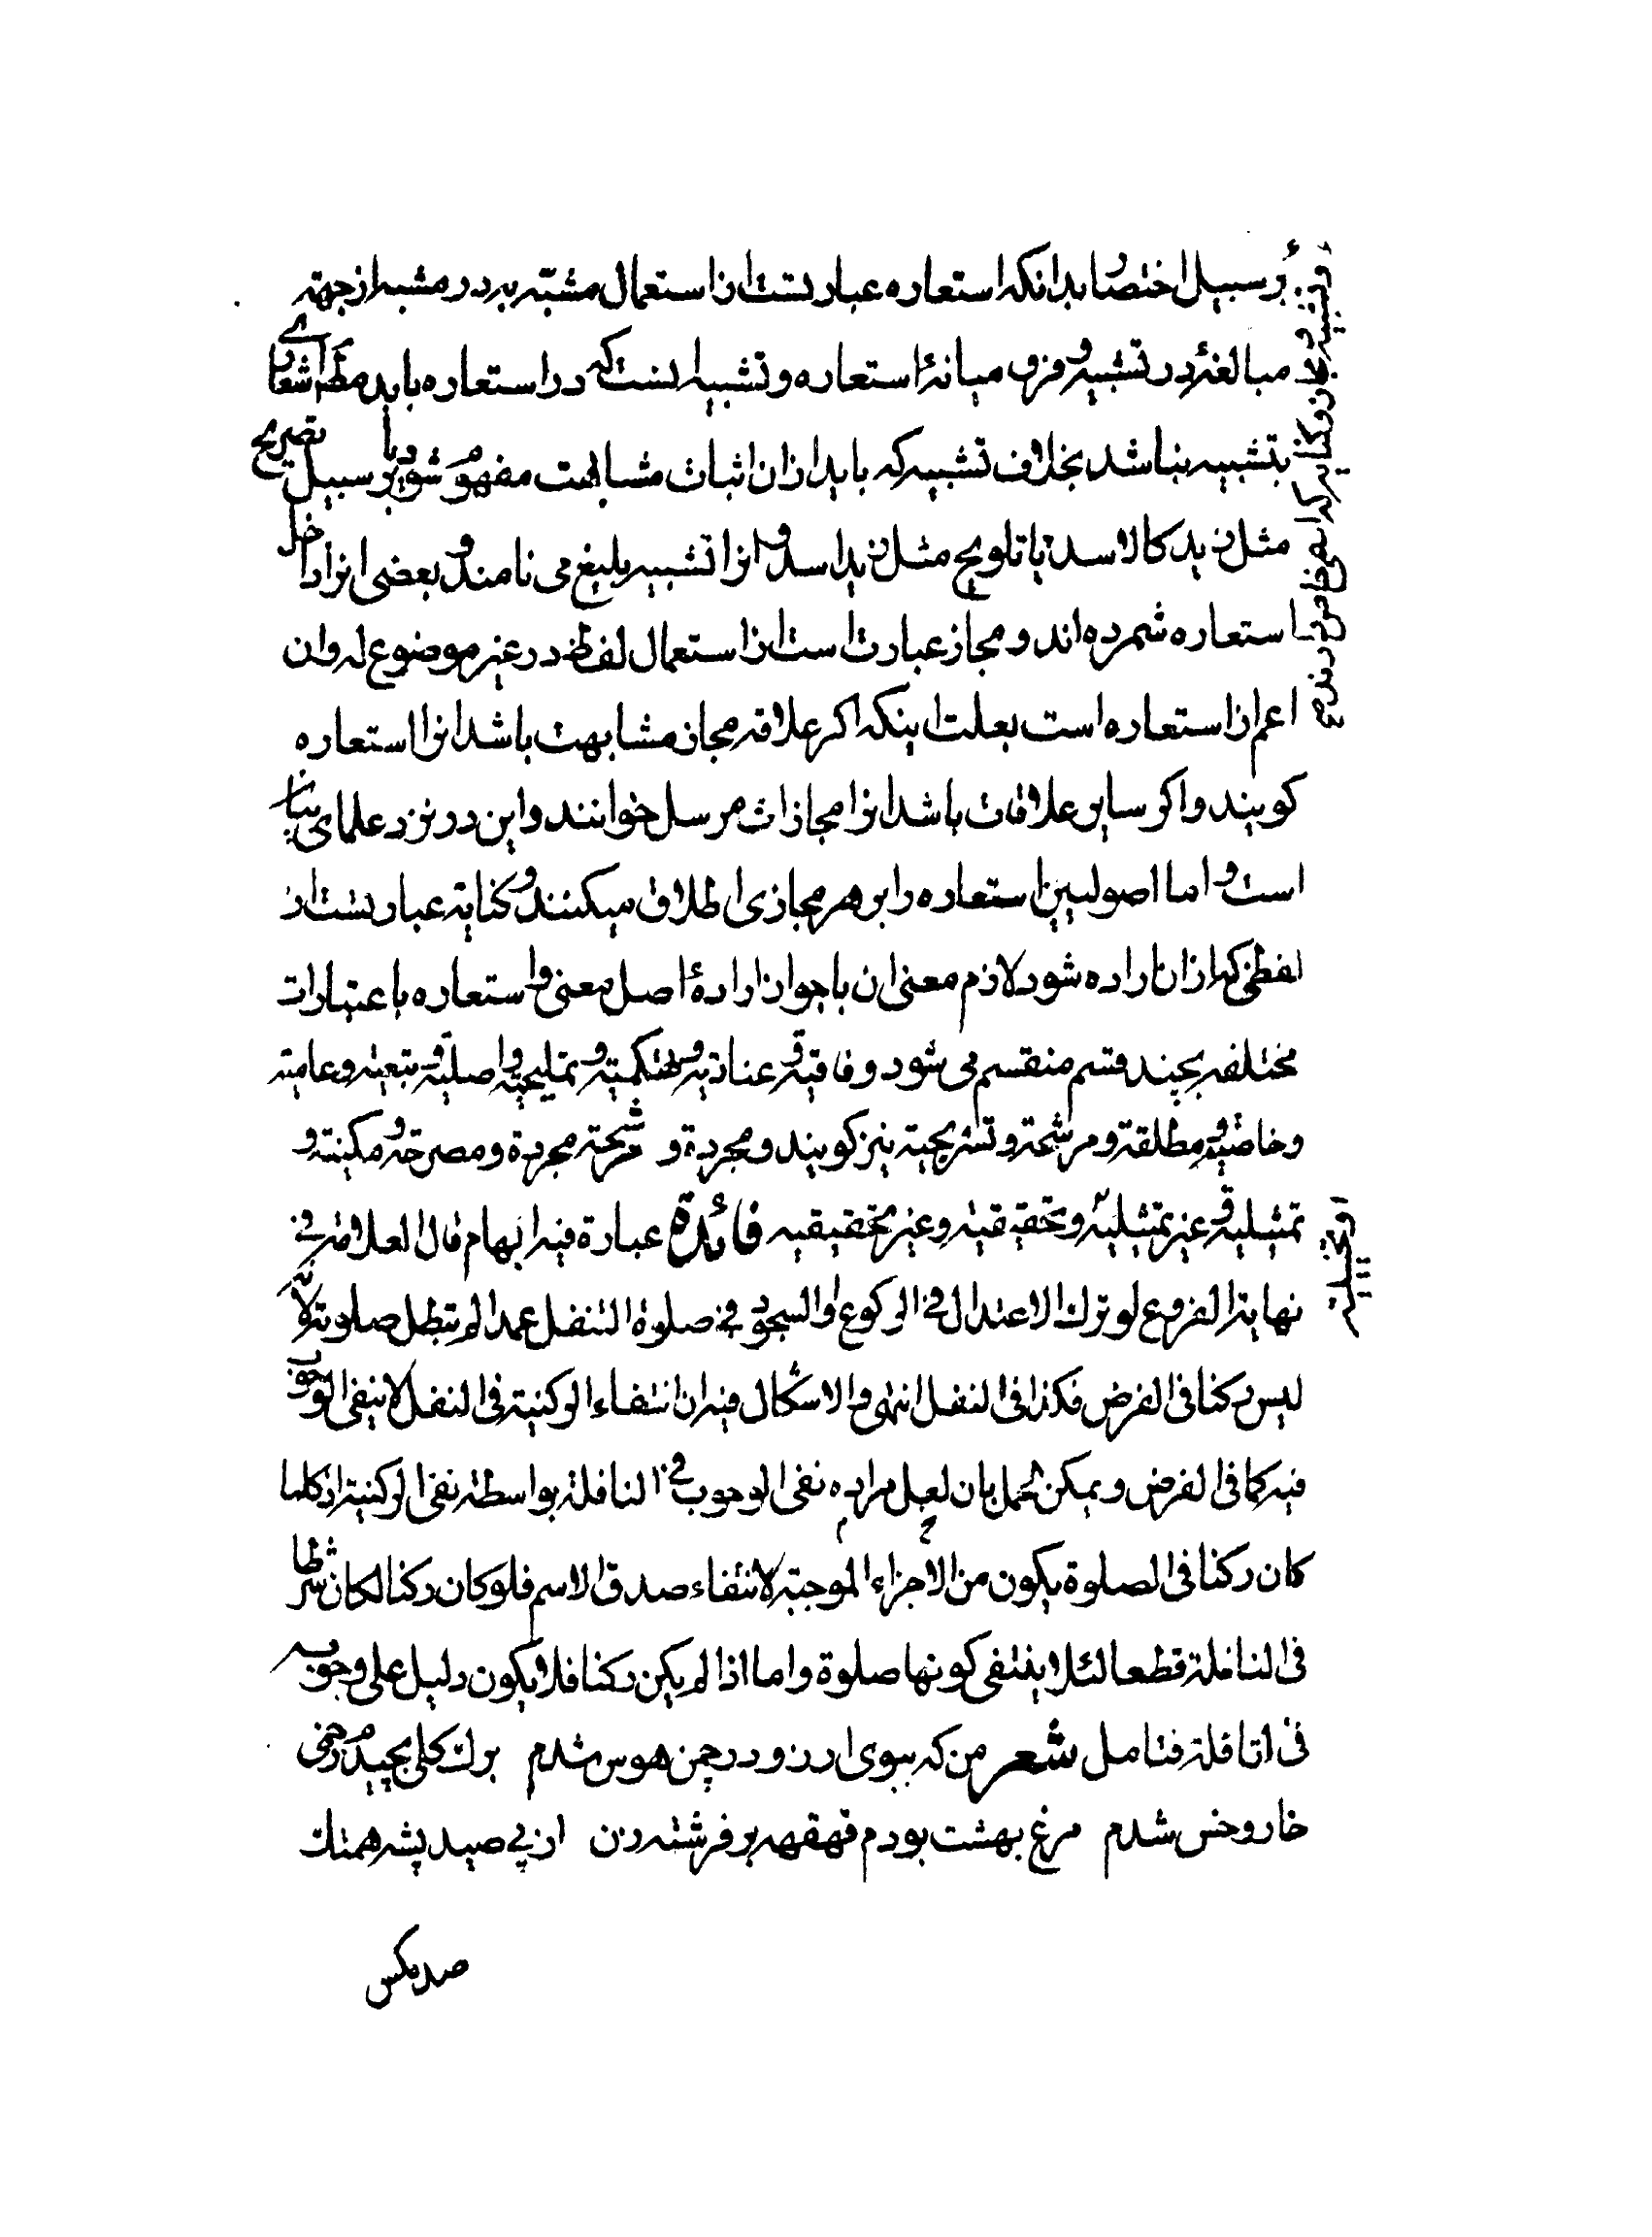 بر سبیل اختصار بدانکه استعاره عبارتست از استعمال مشبّه به در مشبه از جهته
مبالغهٔ در تشبیه و فرق میانهٔ استعاره و تشبیه اینست که در استعاره باید مطلقا اشعاری
بتشبیه نباشد بخلاف تشبیه که باید از ان اثبات مشابهت مفهوم شود یا بر سبیل تصریح
مثل زید کالاسد یا تلویح مثل زید اسد و انرا تشبیه بلیغ می نامند و بعضی انرا داخل
استعاره شمرده اند و مجاز عبارت است از استعمال لفظ در غیر موضوع له و ان
اعم از استعاره است بعلت اینکه اکر علاقه مجاز مشابهت باشد انرا استعاره
کویند و اکر سایر علاقات باشد انرا مجازات مرسل خوانند و این در نزد علمای بیان
است و اما اصولیین استعاره را بر هر مجازی اطلاق میکنند و کنایة عبارتست از
لفظی که از ان اراده شود لازم معنی ان با جواز ارادهٔ اصل معنی و استعاره باعتبارات
مختلفه بچند قسم منقسم می شود وفاقیة و عنادیه و تهکمیّة و تملیحیة و اصلیة و تبعیة و عامیته
و خاصیه و مطلقة و مرشحة و ترشیحیة نیز کویند و مجردة و مرشحة مجردة و مصرحة و مکنیته و
تمثیلیة و غیر تمثیلیّه و تحقیقیة و غیر تحقیقیه فائدة عبارة فیه ابهام قال العلامة فی
نهایة الفروع لو ترک الاعتدال فی الرکوع او السجود فی صلوة التنفل عمدا لم تبطل صلوته لانّه
لیس رکنا فی الفرض فکذا فی النفل انتهی و الاشکال فیه ان انتفاء الرکنیة فی النفل لا ینفی الوجوب
فیه کما فی الفرض و یمکن الحمل بان لعل مراده نفی الوجوب فی النافلة بواسطة نفی الرکنیة اذ کلما
کان رکنا فی الصلوة یکون من الاجزاء الموجبة لانتفاء صدق الاسم فلو کان رکنا لکان شرطا
فی النافلة قطعا لئلا ینتفی کونها صلوة و اما اذا لم یکن رکنا فلا یکون دلیل علی وجوبه
فی النافلة فتامل شعر من که ببوی ارزو در چمن هوس شدم برک کلی نچیدم و زخمی
خار و خس شدم مرغ بهشت بودم قهقهه بر فرشته زن از پی صید پشه همتک
صد مکس
و تشبیه و مجاز و کنایه که ایشان